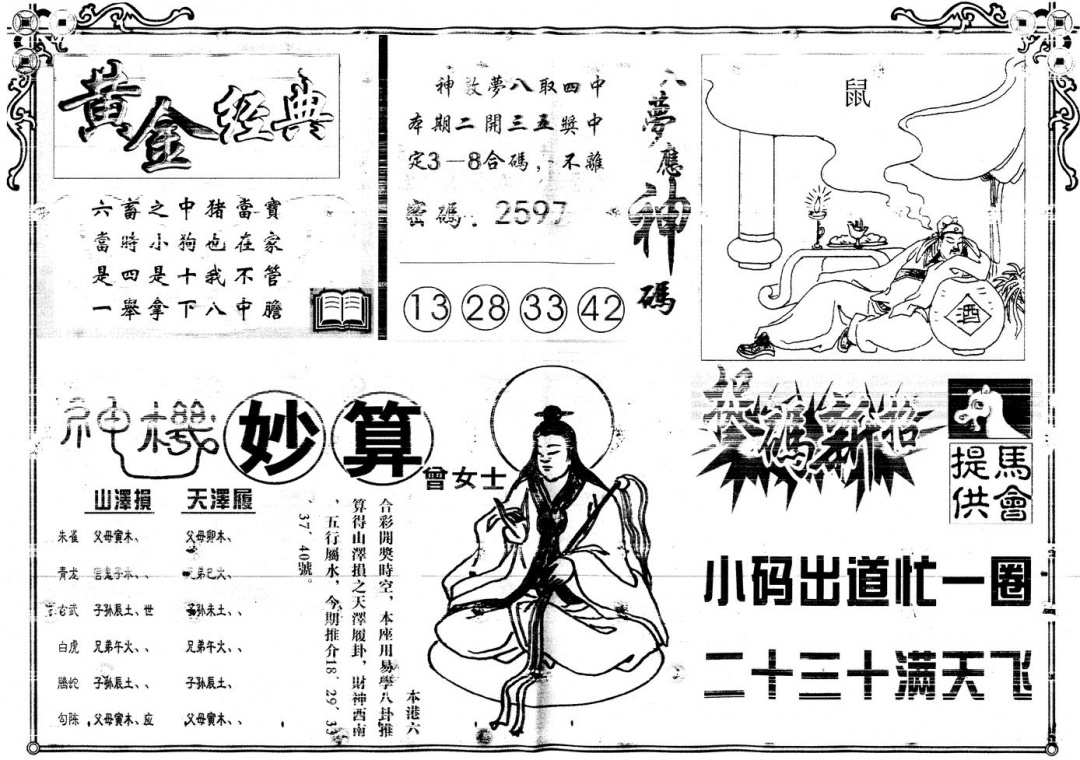 黃金經典
六畜之中猪當寶
當時小狗也在家
是四是十我不管
一舉拿下八中膽
神教夢八取四中
本期二開三五獎中
定3－8合碼，不離
密碼：2597
13 28 33 42
夢應神碼
鼠
酒
神機妙算
曾女士
山澤損 天澤履
朱雀 父母寅木、 父母卯木、
青龙 官鬼子水、、 兄弟巳火、
玄武 子孙辰土、世 子孙未土、、
白虎 兄弟午火、、 兄弟午火、
騰蛇 子孙辰土、、 子孙辰土、
勾陈 父母寅木、应 父母寅木、、
本港六
合彩開獎時空，本座用易學八卦推
算得山澤損之天澤履卦，財神西南
，五行屬水，今期推介18、29、33
、37、40號。
捉碼新招
馬會提供
小码出道忙一圈
二十三十满天飞